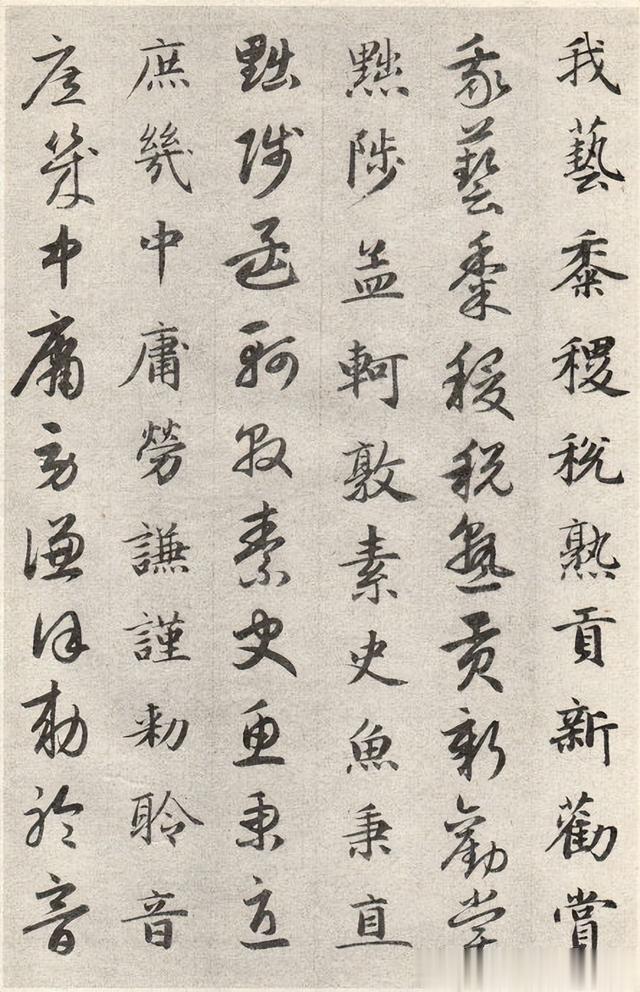 我藝黍稷稅熟貢新勸賞
我藝黍稷稅熟貢新勸賞
黜陟孟軻敦素史魚秉直
黜陟孟軻敦素史魚秉直
庶幾中庸勞謙謹勅聆音
庶幾中庸勞謙謹勅聆音